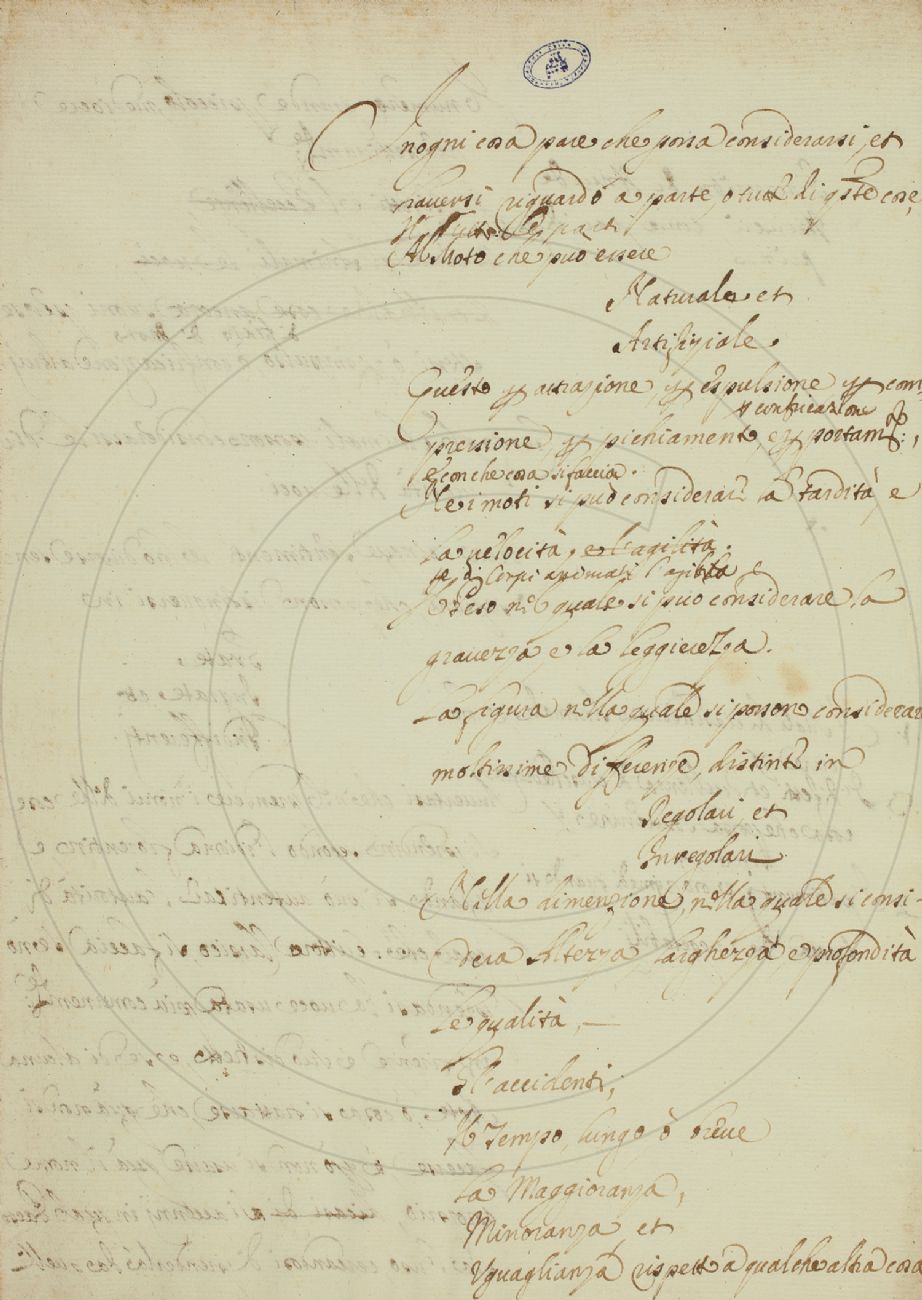 In ogni cosa pare che possa considerarsi, et
haversi riguardo a parte o tutte di qste cose,
Il tutto le parti
Al Moto che può essere
Naturale et
Artifiziale.
Questo p attrazione, p espulsione p com-
p confricazione
pressione p pichiamento, e p portam:,
e con che cosa si faccia.
Ne i moti si può considerare la tardità, e
la velocità, e l'agilità.
e di Corpi animati l'agilità
Il Peso nel quale si può considerare la
gravezza e la leggierezza.
La figura nella quale si posson considerar
moltissime differenze, distinte in
Regolari et
Irregolari
Nella dimenzione, nella quale si consi-
dera Altezza Larghezza e profondità
Le qualità, —
Gl'accidenti,
Il Tempo, lungo ò breve
La Maggioranza,
Minoranza et
Uguaglianza rispetto à qualche altra cosa